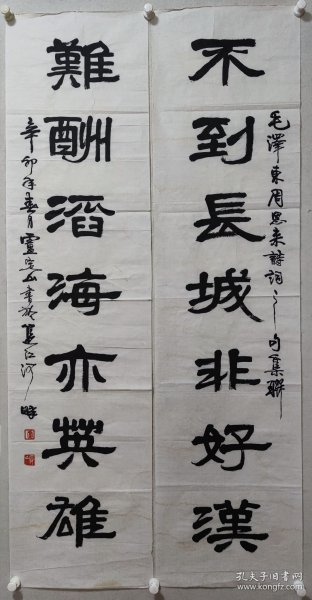 不到長城非好漢
毛澤東周恩来詩詞之句集聯
難酬滔海亦英雄
辛卯年春月靈
孔夫子旧书网
www.kongfz.com